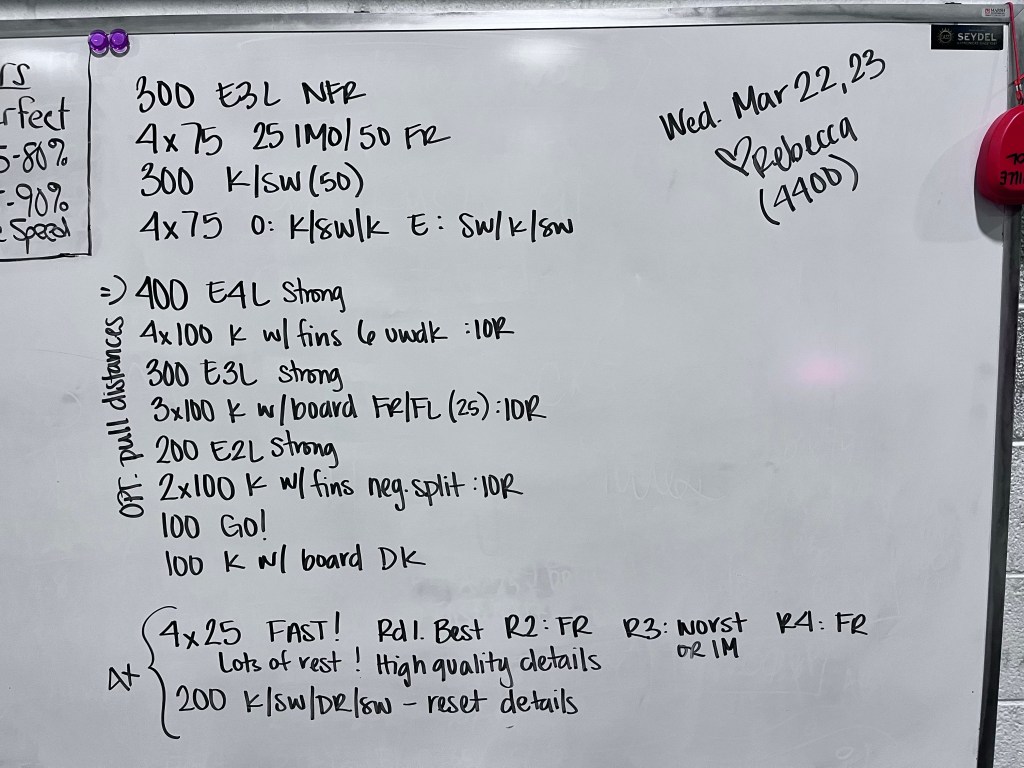 rs
rfect
5-80%
-90%
Speed
SEYDEL
Wed. Mar 22, 23
♡Rebecca
(4400)
300 E3L NFR
4x75 25 IMO/50 FR
300 K/SW (50)
4x75 O: K/SW/K E: SW/K/SW
=) 400 E4L Strong
4x100 K w/ fins 6 uwdk :10R
300 E3L Strong
3x100 K w/board FR/FL (25) :10R
200 E2L Strong
2x100 K w/fins neg. split :10R
100 Go!
100 K w/ board DK
OPT. pull distances
4x {
4x25 FAST! Rd 1. Best R2: FR R3: worst R4: FR
OR IM
Lots of rest! High quality details
200 K/SW/DR/SW - reset details